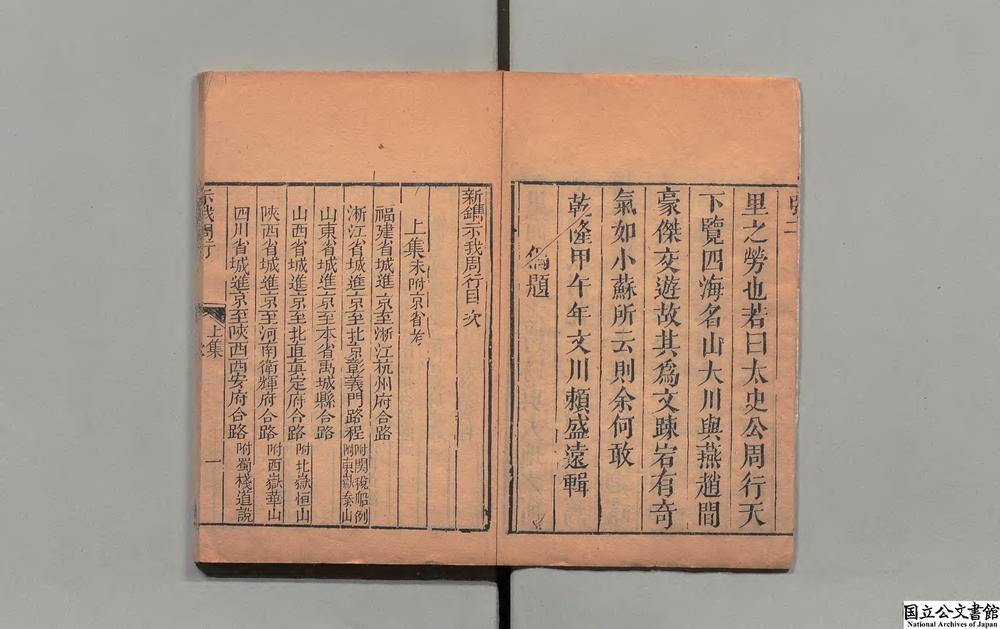 里之勞也若曰太史公周行天
下覽四海名山大川與燕趙間
豪傑交遊故其為文踈宕有奇
氣如小蘇所云則余何敢
乾隆甲午年文川賴盛遠輯
題
新鐫示我周行目次
上集末附京省考
福建省城進京至浙江杭州府合路
浙江省城進京至北京彰義門路程附関稅船例
山東省城進京至本省禹城縣合路附東嶽泰山
山西省城進京至北直真定府合路附北嶽恒山
陝西省城進京至河南衛輝府合路附西嶽華山
四川省城進京至陝西西安府合路附蜀棧道說
示我周行
上集
一
国立公文書館
National Archives of Japan